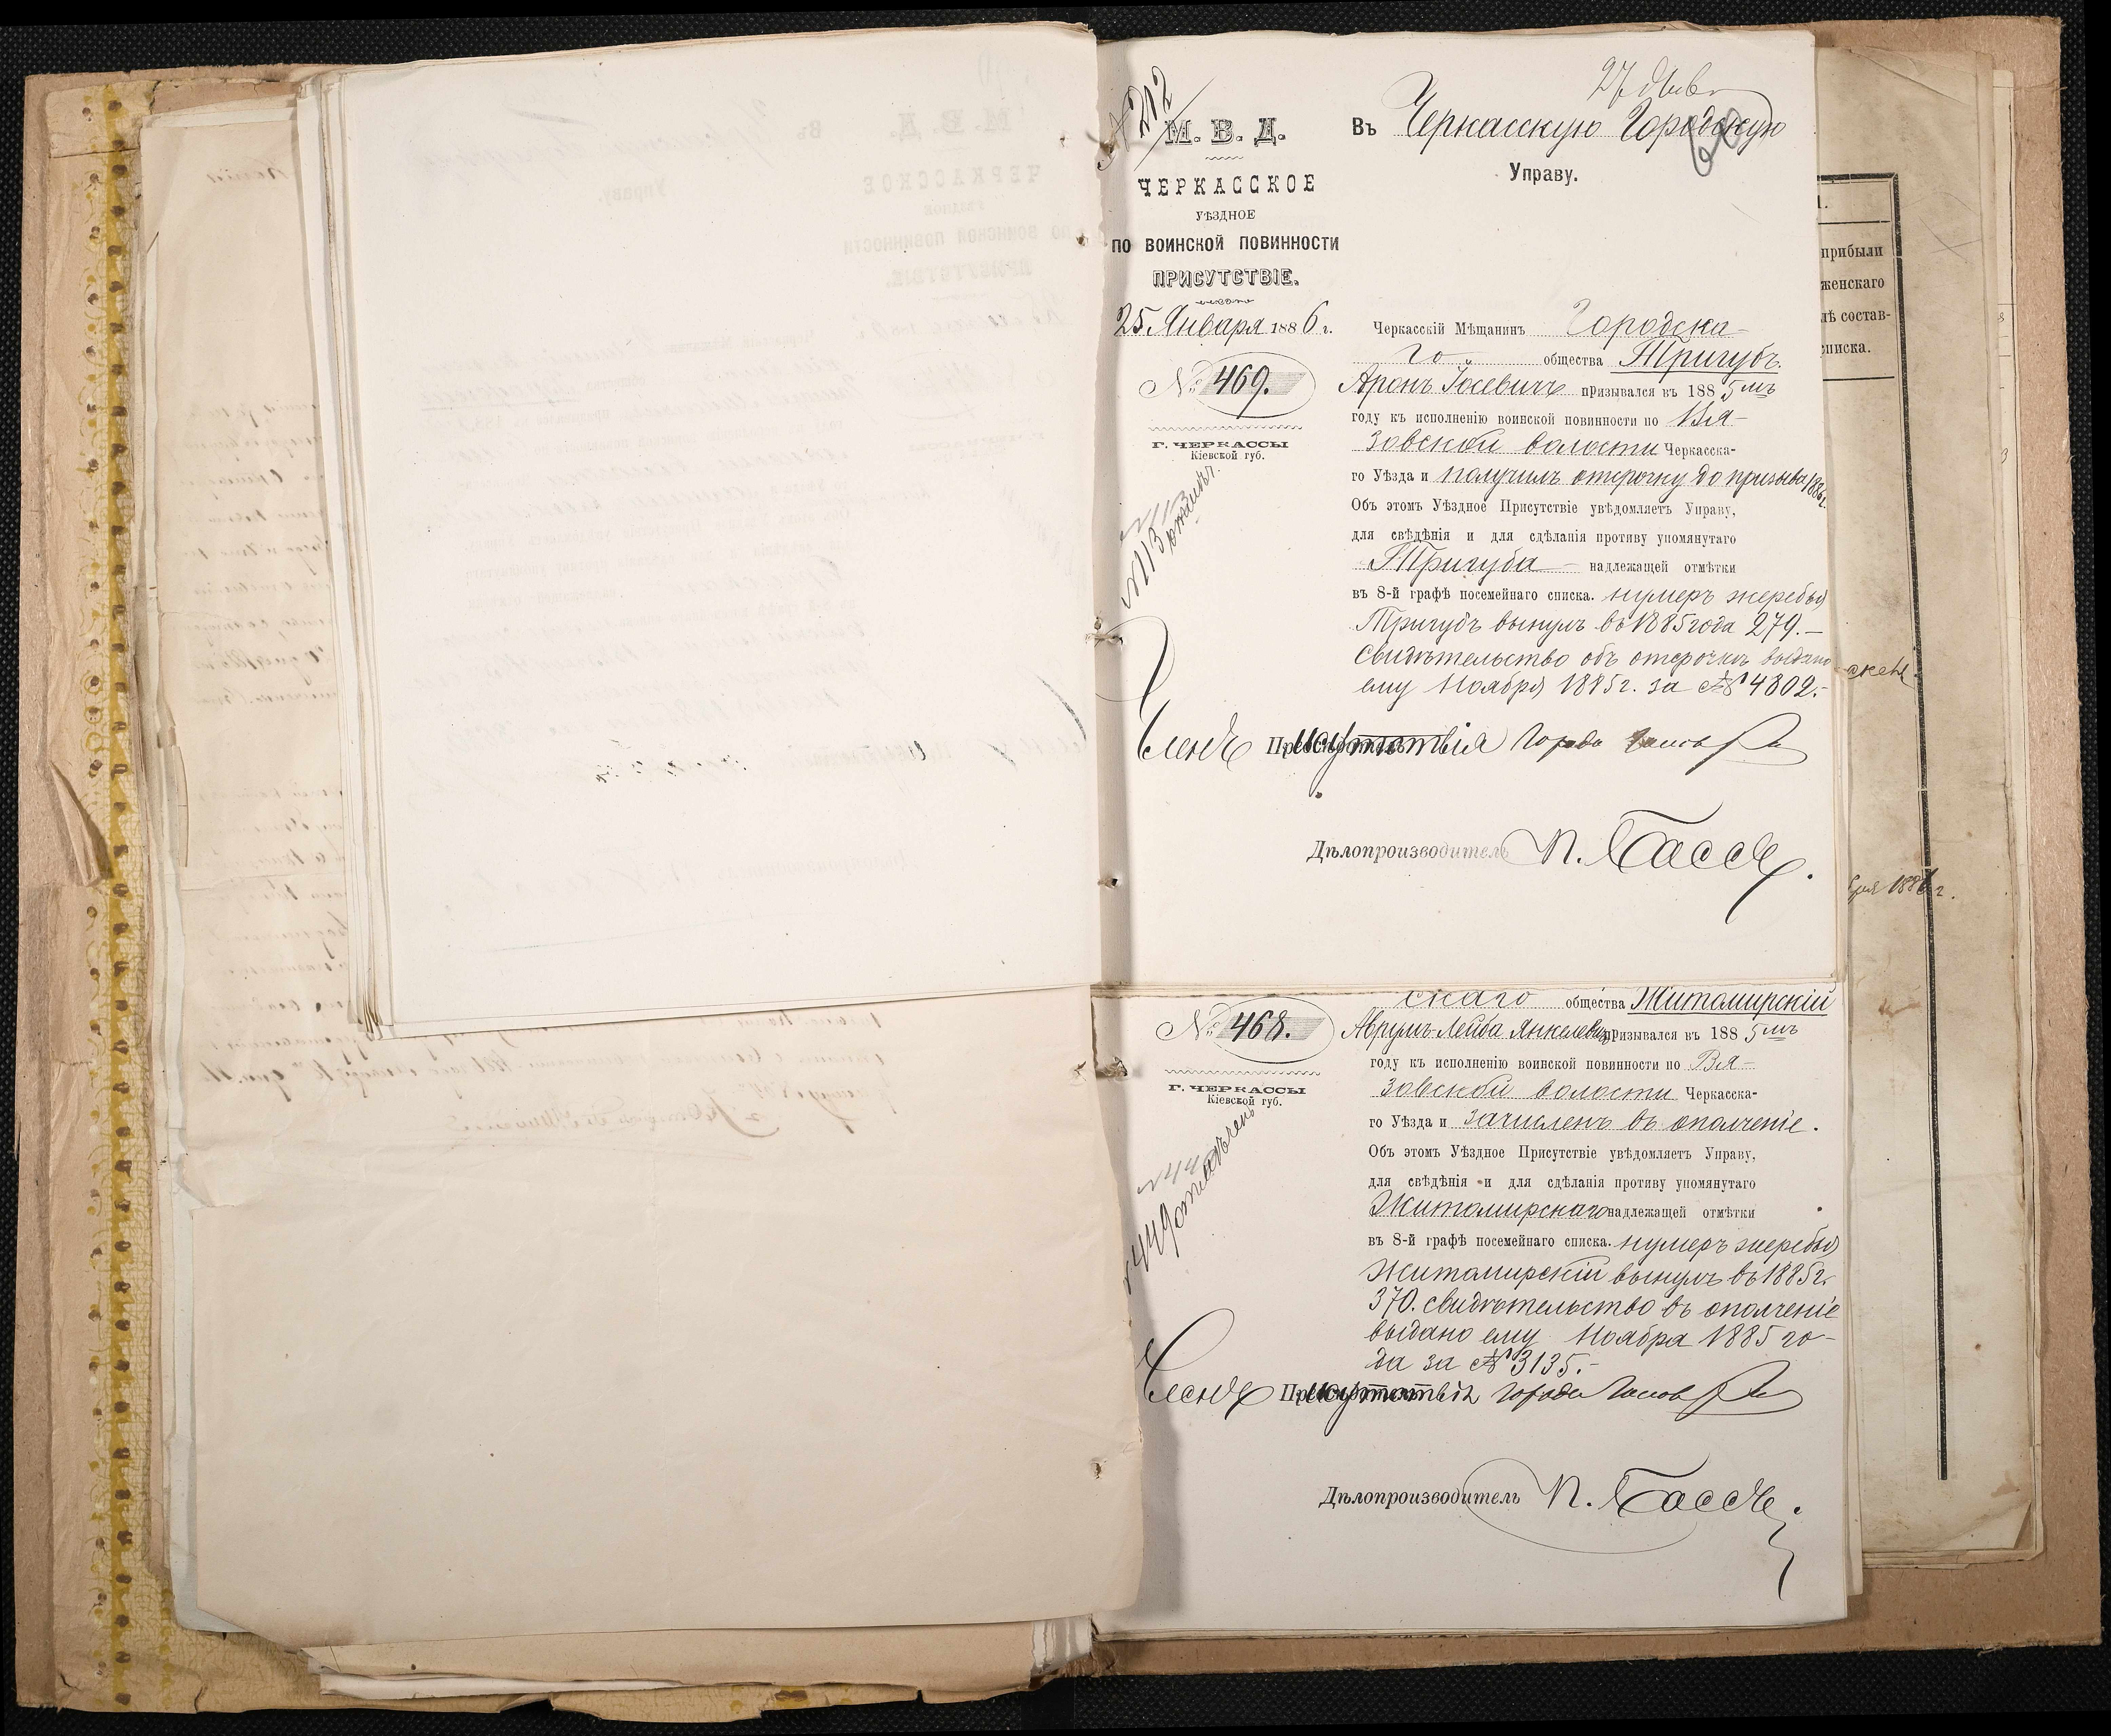 № 212
27 Янв
М. В. Д.
ЧЕРКАССКОЕ
УѢЗДНОЕ
ПО ВОИНСКОЙ ПОВИННОСТИ
ПРИСУТСТВІЕ.
25 Января 1886 г.
№ 469.
Г. ЧЕРКАССЫ
Кіевской губ.
№ 113
Въ Черкасскую Городскую
60
Управу.
Черкасскій Мѣщанинъ Городска-
го общества Тригубъ
Аронъ Іосевичъ призывался въ 1885 мъ
году къ исполненію воинской повинности по Вя-
зовской волости Черкасска-
го Уѣзда и получилъ отсрочку до призыва 1886 г.
Объ этомъ Уѣздное Присутствіе увѣдомляетъ Управу,
для свѣдѣнія и для сдѣланія противу упомянутаго
Тригуба надлежащей отмѣтки
въ 8-й графѣ посемейнаго списка. нумеръ жеребья
Тригубъ вынулъ въ 1885 года 279.—
свидѣтельство объ отсрочкѣ выдано
ему Ноября 1885 г. за № 4802.-
Членъ Присутствія Городс Голова
Дѣлопроизводитель П. Бассъ.
прибыли
женскаго
лѣ состав-
писка.
бря 1886 г.
скаго общества Житомирскій
№ 468.
Аврумъ-Лейба Янкелевичъ призывался въ 1885 мъ
году къ исполненію воинской повинности по Вя-
зовской волости Черкасска-
Г. ЧЕРКАССЫ
Кіевской губ.
№ 449 отмѣченъ
го Уѣзда и зачисленъ въ ополченіе.
Объ этомъ Уѣздное Присутствіе увѣдомляетъ Управу,
для свѣдѣнія и для сдѣланія противу упомянутаго
Житомирскаго надлежащей отмѣтки
въ 8-й графѣ посемейнаго списка. нумеръ жеребья
Житомирскій вынулъ въ 1885 г.
370. свидѣтельство въ ополченіе
выдано ему Ноября 1885 го-
да за № 3135.-
Членъ Присутствія Городс Голова
Дѣлопроизводитель П. Бассъ.